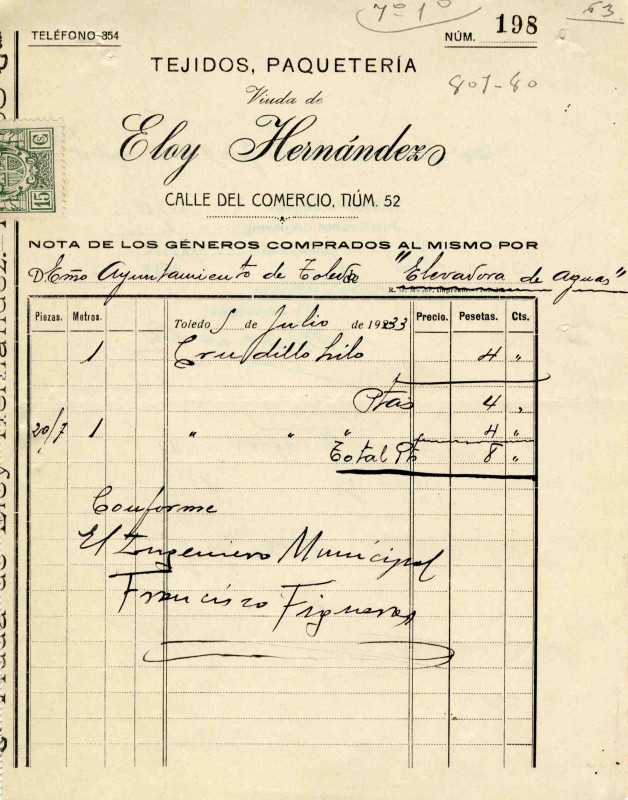 7º 1º
63
TELÉFONO 354
NÚM. 198
TEJIDOS, PAQUETERÍA
807-80
Viuda de
Eloy Hernández
15 C
CALLE DEL COMERCIO, NÚM. 52
NOTA DE LOS GÉNEROS COMPRADOS AL MISMO POR
D. Exmo Ayuntamiento de Toledo "Elevadora de Aguas"
Piezas. Metros. Toledo 5 de Julio de 1933 Precio. Pesetas. Cts.
1 Crudillo hilo 4 "
Ptas 4 "
20/7 1 " " " 4 "
Total Pts 8 "
Conforme
El Ingeniero Municipal
Francisco Figueras